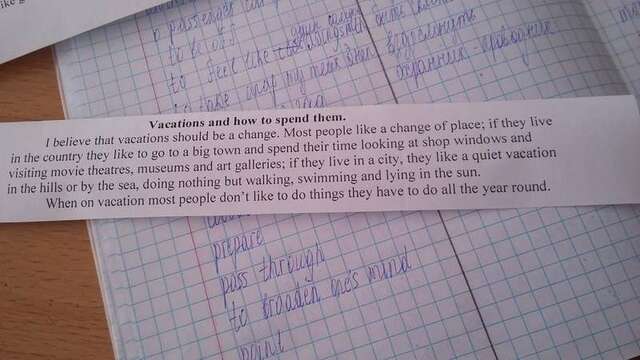 to be off
to feel like
Vacations and how to spend them.
I believe that vacations should be a change. Most people like a change of place; if they live
in the country they like to go to a big town and spend their time looking at shop windows and
visiting movie theatres, museums and art galleries; if they live in a city, they like a quiet vacation
in the hills or by the sea, doing nothing but walking, swimming and lying in the sun.
When on vacation most people don't like to do things they have to do all the year round.
prepare
pass through
to broaden one's mind